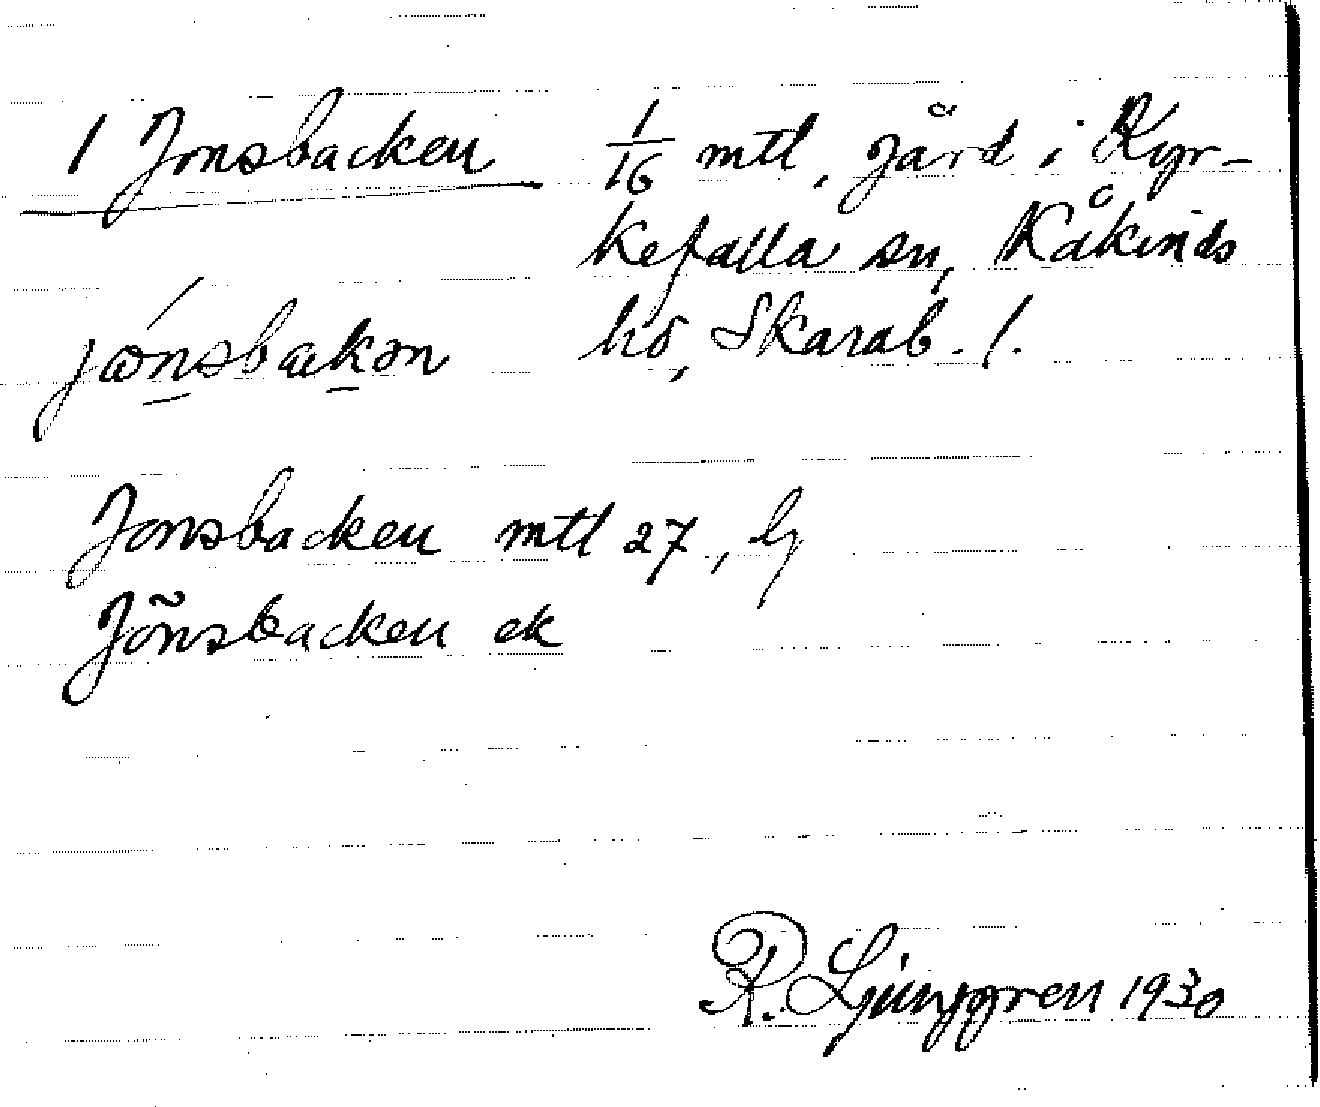 1 Jonsbacken 1/16 mtl, gård i Kyr-
kefalla sn, Kåkinds
hd, Skarab. l.
jönsbakən
Jonsbacken mtl 27, lj
Jönsbacken ek
R. Ljunggren 1930